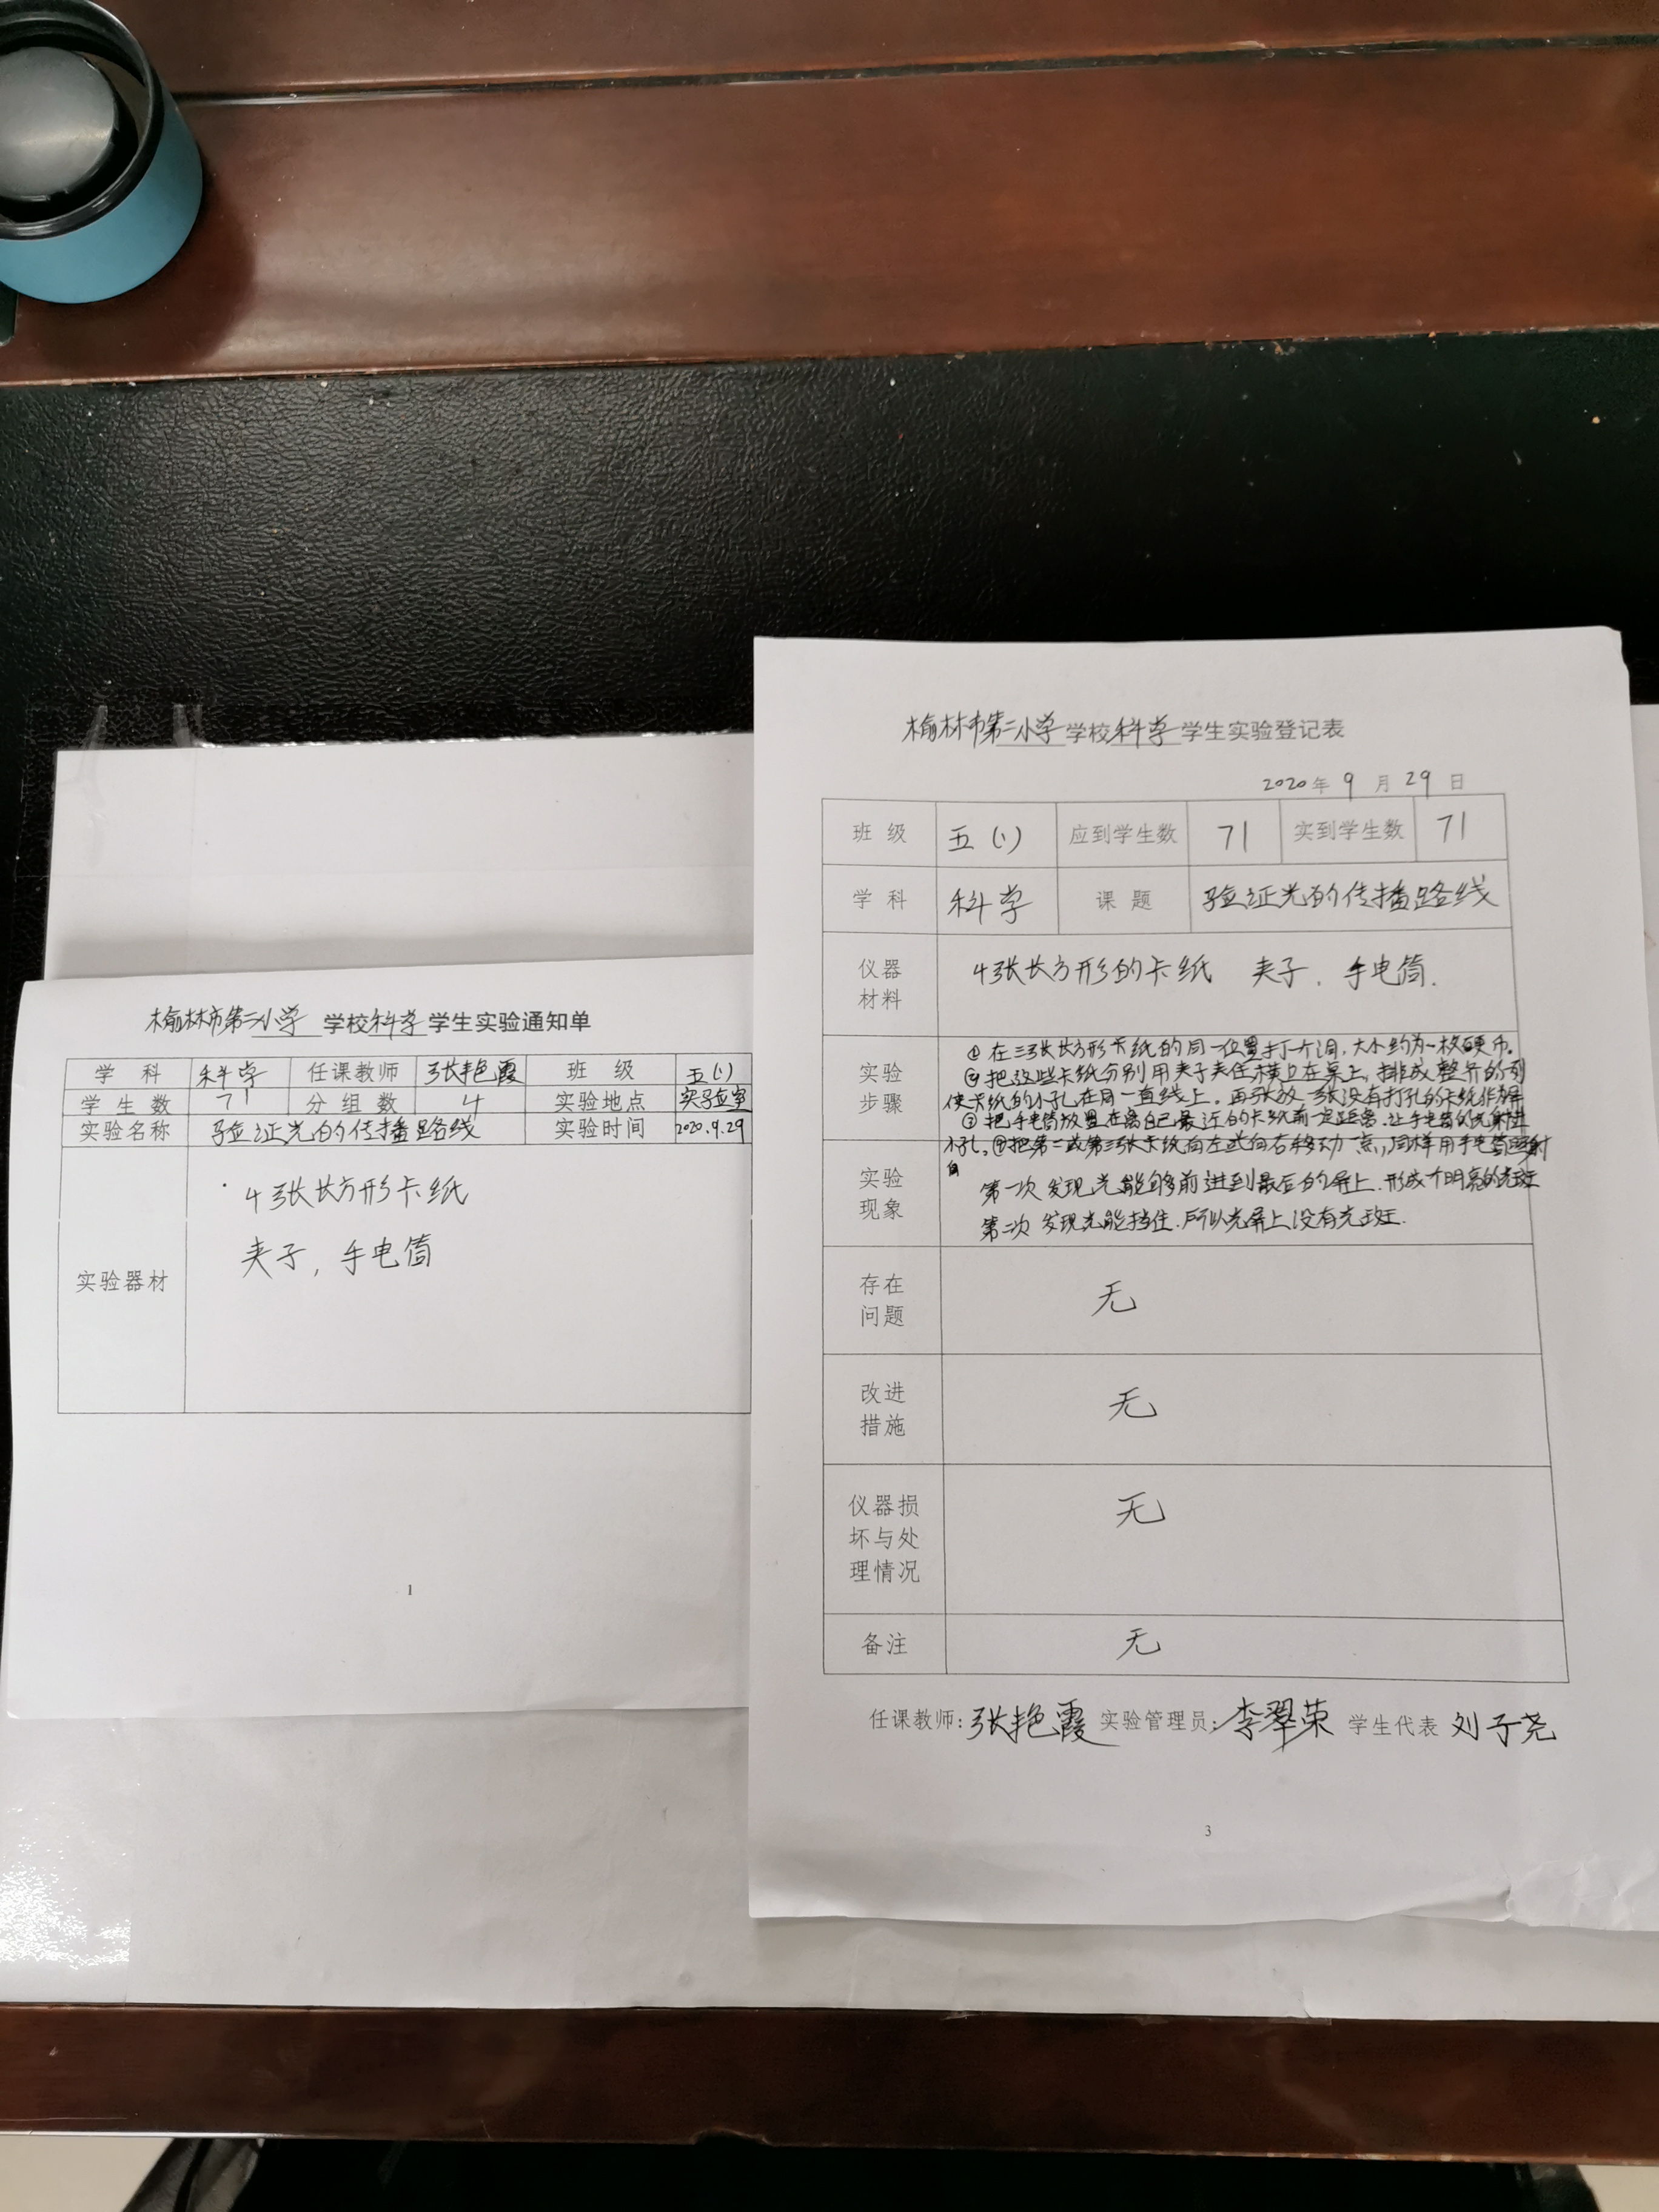 榆林市第二小学 学校科学学生实验通知单
学 科 科学 任课教师 张艳霞 班 级 五(1)
学 生 数 71 分 组 数 4 实验地点 实验室
实验名称 验证光的传播路线 实验时间 2020.9.29
实验器材
4张长方形卡纸
夹子, 手电筒
1
榆林市第二小学学校科学学生实验登记表
2020年 9 月 29 日
班 级 五(1) 应到学生数 71 实到学生数 71
学 科 科学 课 题 验证光的传播路线
仪器
材料
4张长方形的卡纸 夹子. 手电筒.
实验
步骤
①在三张长方形卡纸的同一位置打一个洞,大小约为一枚硬币。
②把这些卡纸分别用夹子夹住横立在桌上,排成整齐的列
使卡纸的小孔在同一直线上。再张放一张没有打孔的卡纸作为屏
③把手电筒放置在离自己最近的卡纸前一定距离.让手电筒的光射进
小孔。④把第二或第三张卡纸向左或向右移动一点,同样用手电筒照射
实验
现象
第一次发现光能够前进到最后的屏上.形成个明亮的光斑
第二次发现光能挡住.所以光屏上没有光斑.
存在
问题
无
改进
措施
无
仪器损
坏与处
理情况
无
备注 无
任课教师:张艳霞 实验管理员:李翠荣 学生代表 刘子尧
3